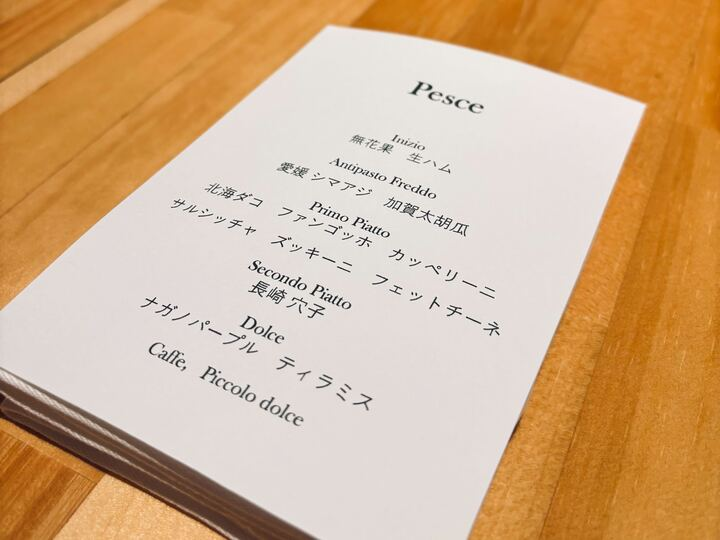 Pesce
Inizio
無花果　生ハム
Antipasto Freddo
愛媛 シマアジ　加賀太胡瓜
Primo Piatto
北海ダコ　ファンゴッホ　カッペリーニ
サルシッチャ　ズッキーニ　フェットチーネ
Secondo Piatto
長崎 穴子
Dolce
ナガノパープル　ティラミス
Caffe,　Piccolo dolce